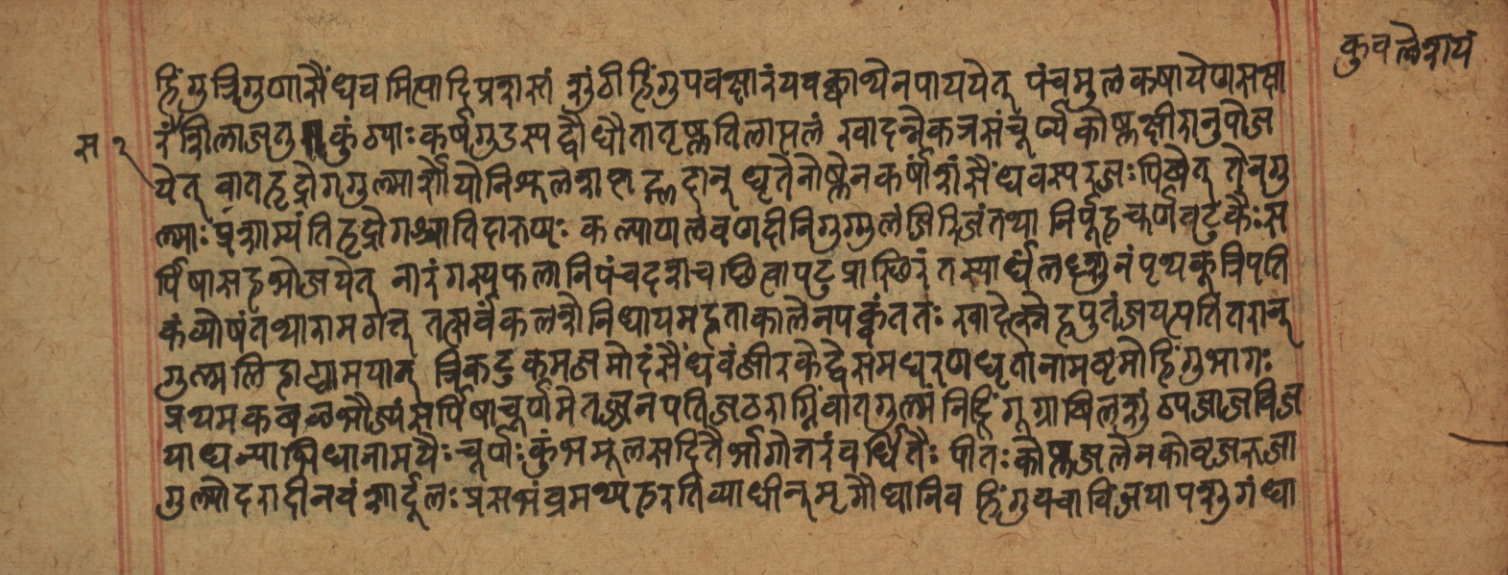 कुवलेशयं
हिंगुत्रिगुणासैंधवमित्यादिप्रशस्तं शुंठीहिंगुपवक्षारंयवक्वाथेनपाययेत् पंचमुलकषायेणसक्षा
रंशिलाजतु कुंठ्याःकर्षगुडस्पद्वौधौतातकृष्णतिलासलं खादन्नेकत्रसंचूर्ण्यकोष्णक्षीरानुपोज
स १
येत् वातहृद्रोगगुल्मार्शोयोनिशूलशकृद्ग्रहान् घृतेनोष्णेनकर्षांशंसैंधवस्परजःपिबेत् तेनगु
ल्माःप्रशाम्यंतिहृद्रोगश्चातिदारुणः कल्याणलवणदीनिगुग्गुलंजिरिजंतथा निर्यूहचूर्णवटुकैःस
र्पिषासहभोजयेत् नारंगस्पफलानिपंचदशचछित्वापटुप्राछिरं तस्यार्धंलशुनंपृथक्त्रिपति
कंव्योषंतथारामगत्त् तत्सर्वंकलशेनिधायमहताकालेनपक्वंततः खादेत्स्नेहपुतंजयत्यतितरान्
गुल्मप्लिहाग्न्यामयान् त्रिकटुकमजमोदंसैंधवंजीरकेद्वेसमधरणधृतानामष्टमोहिंगुभागः
प्रथमकवळभोज्यंसर्पिषाचूर्णमेतज्जनयतिजठराग्निंवातगुल्मंनिहंति गूग्राबिलशुंठ्यजाजविज
याधन्याभिधानामयैःचूर्णःकुंभमूलसहितैर्भागोत्तरंवर्धितैः पीतःकोष्णजलेनकोष्ठजरुजा
गुल्मोदरादीनयंशार्दूलःप्रसभंप्रमथ्यहरतिव्याधीन्मृगौघानिव हिंगुवचाविजयापशुगंधा